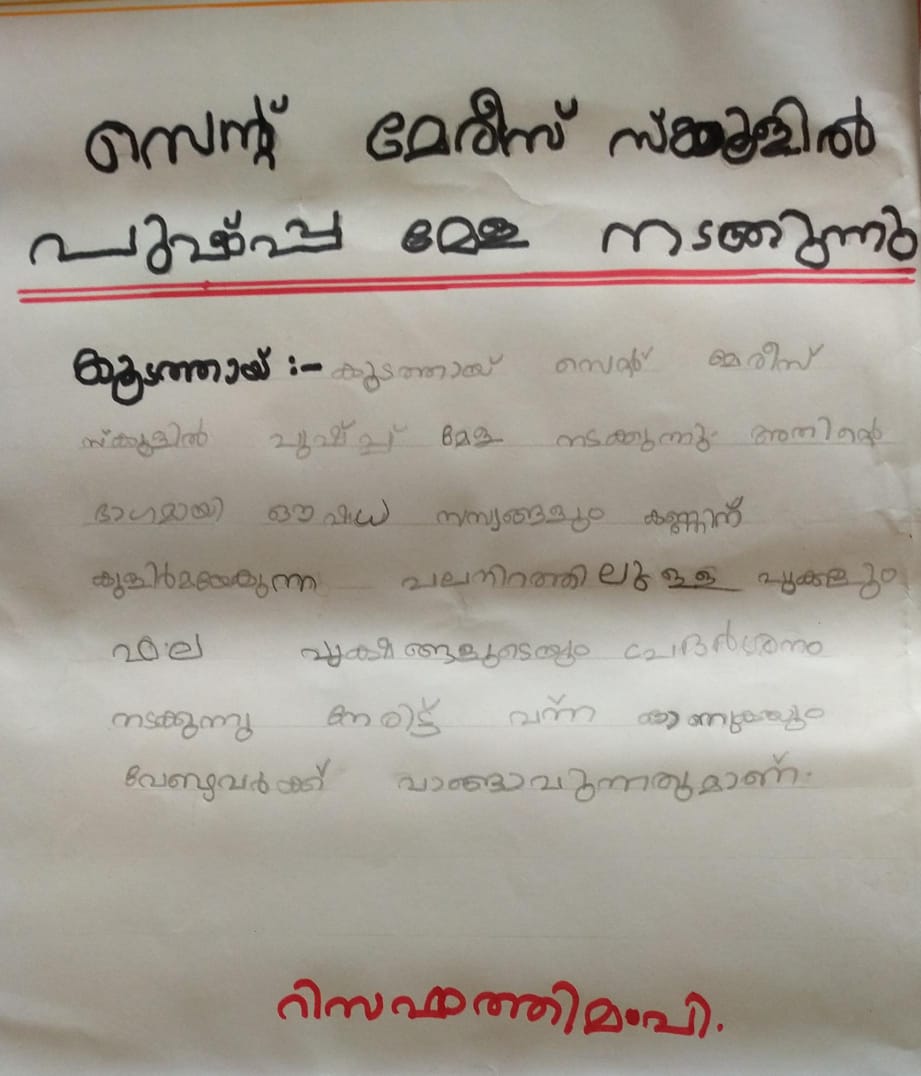 സെന്റ് മേരീസ് സ്ക്കൂളിൽ
പുഷ്പ്പ മേള നടത്തുന്നു
കൂടത്തായ് :- കൂടത്തായ് സെന്റ് മേരീസ്
സ്ക്കൂളിൽ പുഷ്പ്പ് മേള നടക്കുന്നു. അതിന്റെ
ഭാഗമായി ഔഷധ സസ്യങ്ങളും കണ്ണിന്
കുളിർമയേകുന്ന പലനിറത്തിലുള്ള പൂക്കളും
പല വൃക്ഷങ്ങളുടെയും പ്രദർശനം
നടക്കുന്നു നേരിട്ട് വന്ന് കാണുകയും
വേണ്ടവർക്ക് വാങ്ങാവുന്നതുമാണ്.
റിസഫാത്തിമ.പി.